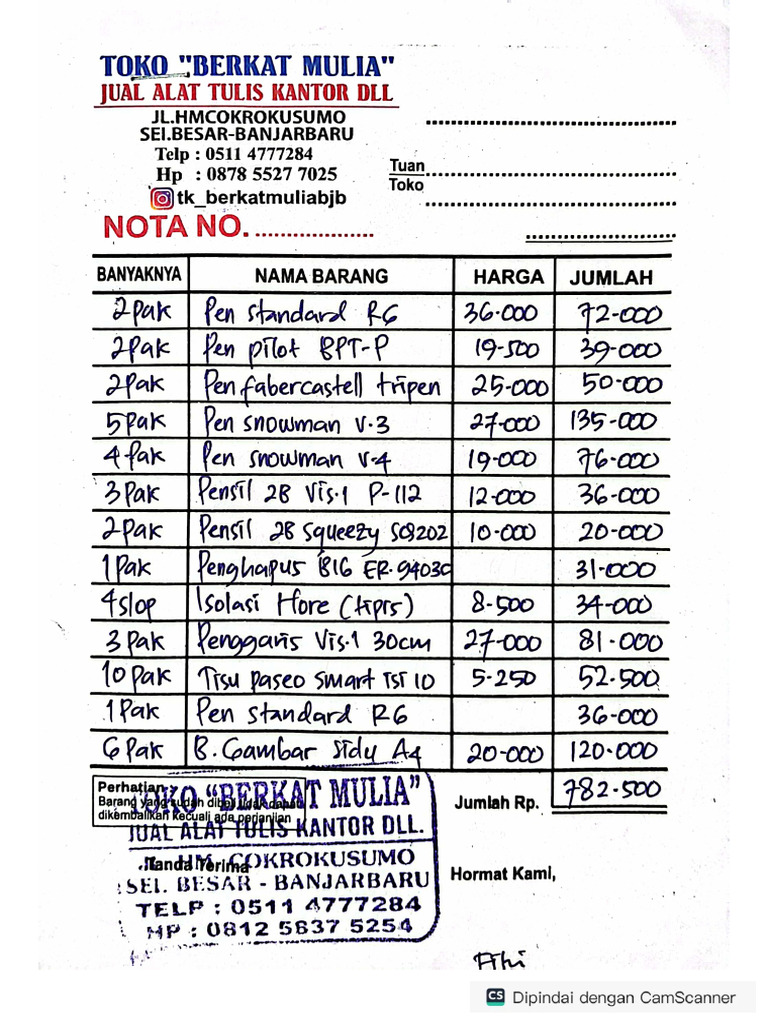 TOKO "BERKAT MULIA"
JUAL ALAT TULIS KANTOR DLL
JL.HMCOKROKUSUMO
SEI.BESAR-BANJARBARU
Telp : 0511 4777284
Hp : 0878 5527 7025
tk_berkatmuliabjb
NOTA NO. ...................
Tuan
Toko
BANYAKNYA NAMA BARANG HARGA JUMLAH
2 pak Pen standard R6 36.000 72.000
2 pak Pen pilot BPT-P 19.500 39.000
2 pak Pen fabercastell tripen 25.000 50.000
5 pak Pen snowman V.3 27.000 135.000
4 pak Pen snowman V-4 19.000 76.000
3 pak Pensil 2B Vis.1 P-112 12.000 36.000
2 pak Pensil 2B Squeezy SC9202 10.000 20.000
1 pak Penghapus B16 ER.9403C 31.000
4 slop Isolasi Hore (tipis) 8.500 34.000
3 pak Penggaris Vis.1 30cm 27.000 81.000
10 pak Tisu paseo smart isi 10 5.250 52.500
1 pak Pen standard R6 36.000
6 pak B. Gambar Sidu A4 20.000 120.000
Jumlah Rp. 782.500
Perhatian
Barang yang sudah dibeli tidak dapat
dikembalikan kecuali ada perjanjian
TOKO "BERKAT MULIA"
JUAL ALAT TULIS KANTOR DLL.
Tanda Terima
JL. HM. COKROKUSUMO
SEI. BESAR - BANJARBARU
TELP : 0511 4777284
HP : 0812 5637 5254
Hormat Kami,
CS Dipindai dengan CamScanner